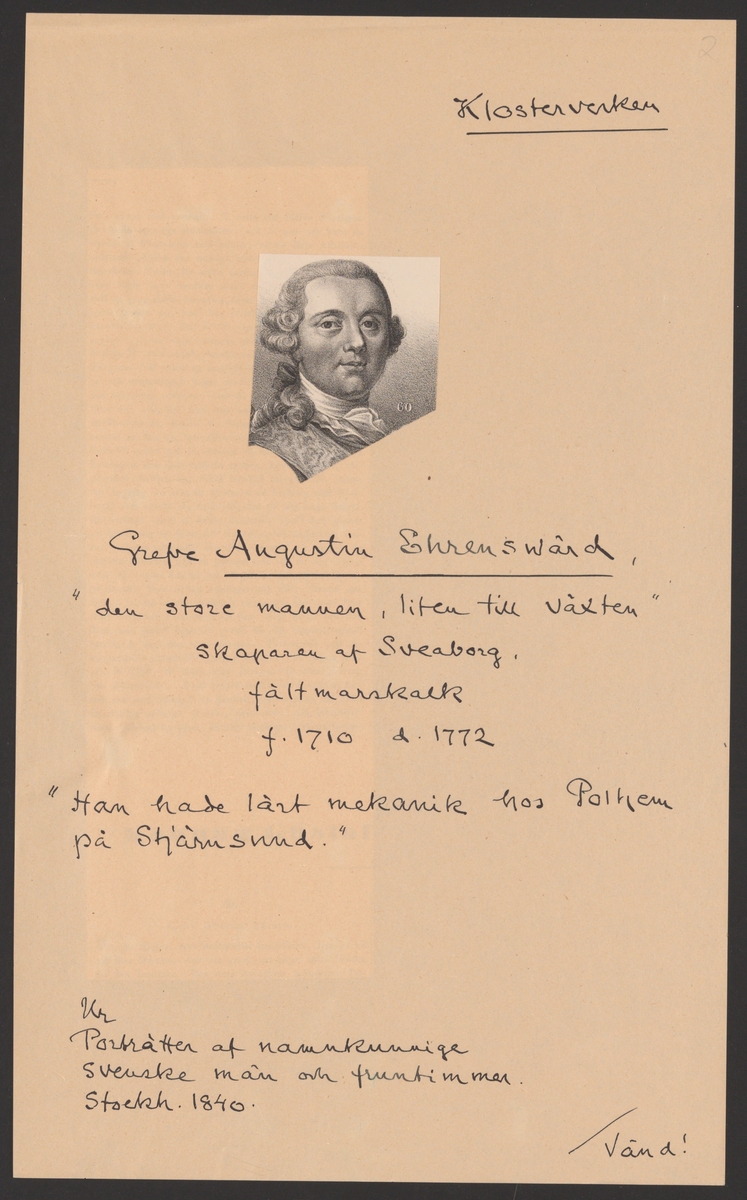 2
Klosterverken
60
Grefve Augustin Ehrenswärd,
"den store mannen, liten till växten"
skaparen af Sveaborg,
fältmarskalk
f. 1710 d. 1772
"Han hade lärt mekanik hos Polhem
på Stjärnsund."
Ur
Porträtter af namnkunnige
svenske män och fruntimmer.
Stockh. 1840.
/Vänd!